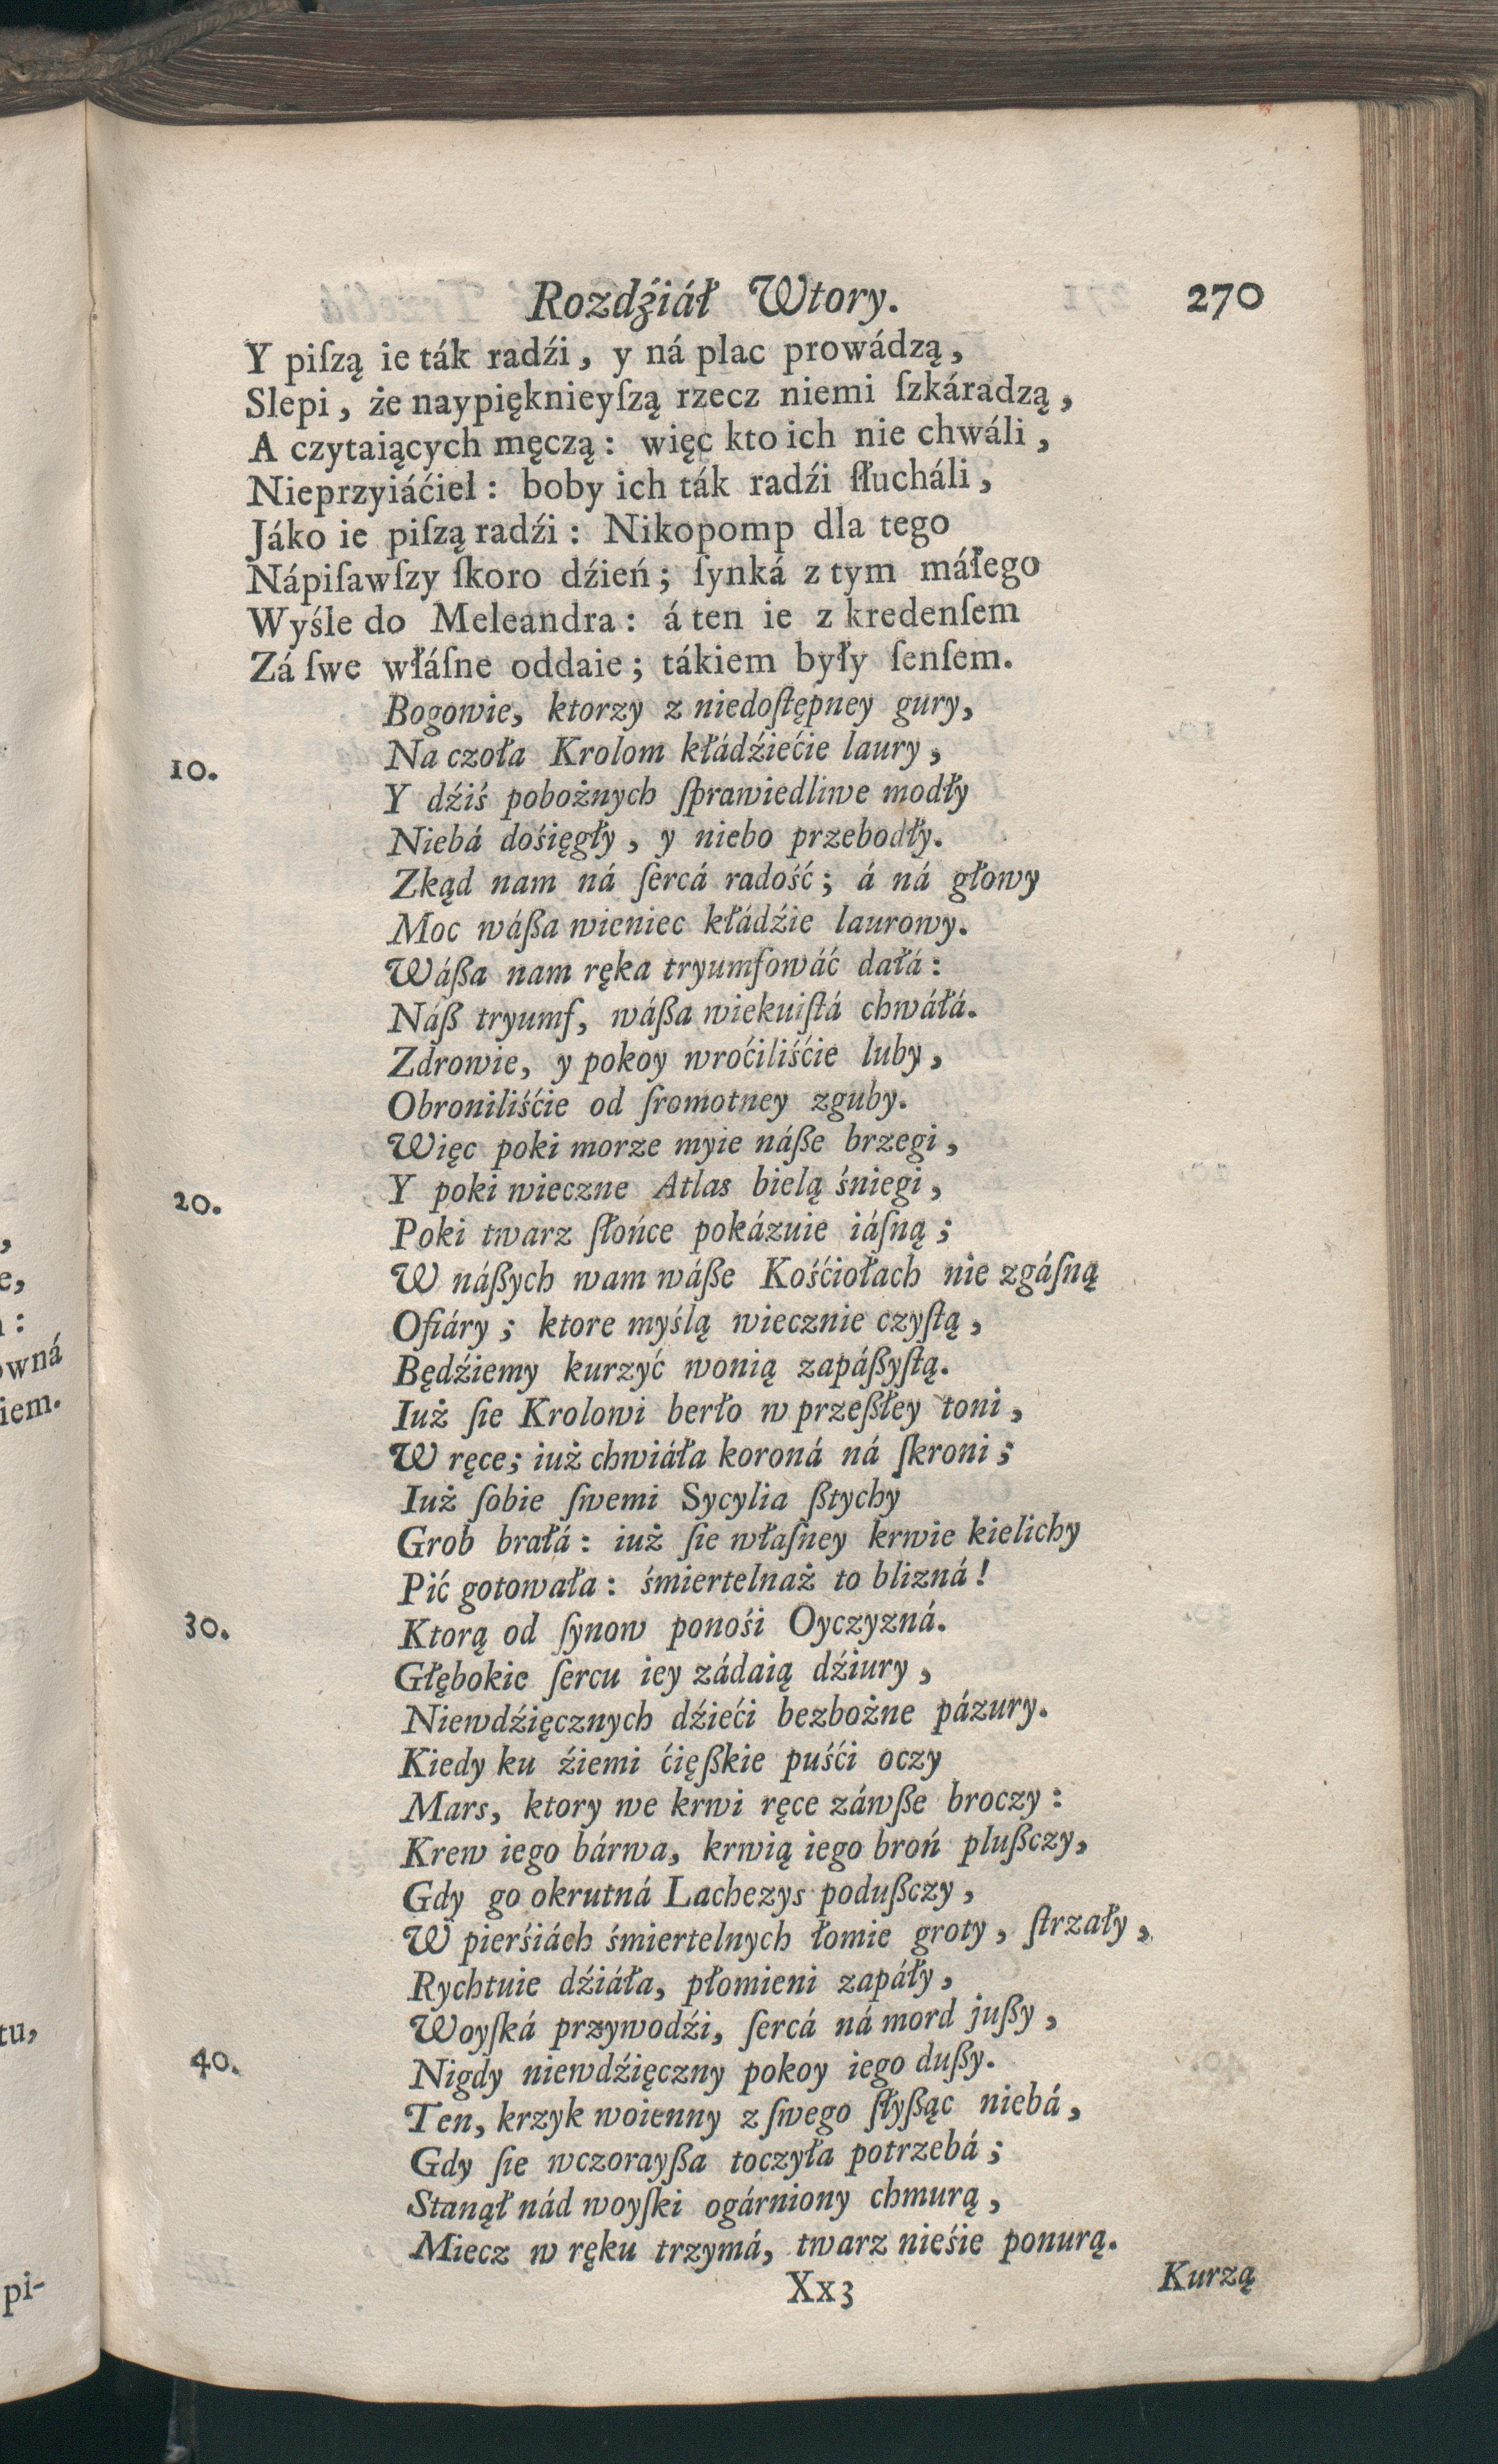 Rozdźiáł Wtory. 270
Y piſzą ie ták radźi, y ná plac prowádzą,
Slepi, że naypięknieyſzą rzecz niemi ſzkáradzą,
A czytaiących męczą: więc kto ich nie chwáli,
Nieprzyiáćiel: boby ich ták radźi ſłucháli,
Jáko ie piſzą radźi: Nikopomp dla tego
Nápiſawſzy ſkoro dźień; ſynká z tym máłego
Wyśle do Meleandra: á ten ie z kredenſem
Zá ſwe włáſne oddaie; tákiem były ſenſem.
Bogowie, ktorzy z niedoſtępney gury,
10. Na czoła Krolom kłádźiećie laury,
Y dźiś pobożnych ſprawiedliwe modły
Niebá dośięgły, y niebo przebodły.
Zkąd nam ná ſercá radość; á ná głowy
Moc wáßa wieniec kłádźie laurowy.
Wáßa nam ręka tryumfowáć dałá:
Náß tryumf, wáßa wiekuiſtá chwáłá.
Zdrowie, y pokoy wroćiliśćie luby,
Obroniliśćie od ſromotney zguby.
Więc poki morze myie náße brzegi,
20. Y poki wieczne Atlas bielą śniegi,
Poki twarz ſłońce pokázuie iáſną;
W náßych wam wáße Kośćiołach nie zgáſną
Ofiáry; ktore myślą wiecznie czyſtą,
Będźiemy kurzyć wonią zapáßyſtą.
Iuż ſie Krolowi berło w przeßłey toni,
W ręce; iuż chwiáła koroná ná ſkroni;
Iuż ſobie ſwemi Sycylia ßtychy
Grob brałá: iuż ſie właſney krwie kielichy
Pić gotowała: śmiertelnaż to blizná!
30. Ktorą od ſynow ponośi Oyczyzná.
Głębokie ſercu iey zádaią dźiury,
Niewdźięcznych dźieći bezbożne pázury.
Kiedy ku źiemi ćięßkie puśći oczy
Mars, ktory we krwi ręce záwße broczy:
Krew iego bárwa, krwią iego broń plußczy,
Gdy go okrutná Lachezys podußczy,
W pierśiách śmiertelnych łomie groty, ſtrzały,
Rychtuie dźiáła, płomieni zapáły,
Woyſká przywodźi, ſercá ná mord jußy,
40. Nigdy niewdźięczny pokoy iego dußy.
Ten, krzyk woienny z ſwego ſłyßąc niebá,
Gdy ſie wczorayßa toczyła potrzebá;
Stanął nád woyſki ogárniony chmurą,
Miecz w ręku trzymá, twarz nieśie ponurą.
Xx3 Kurzą